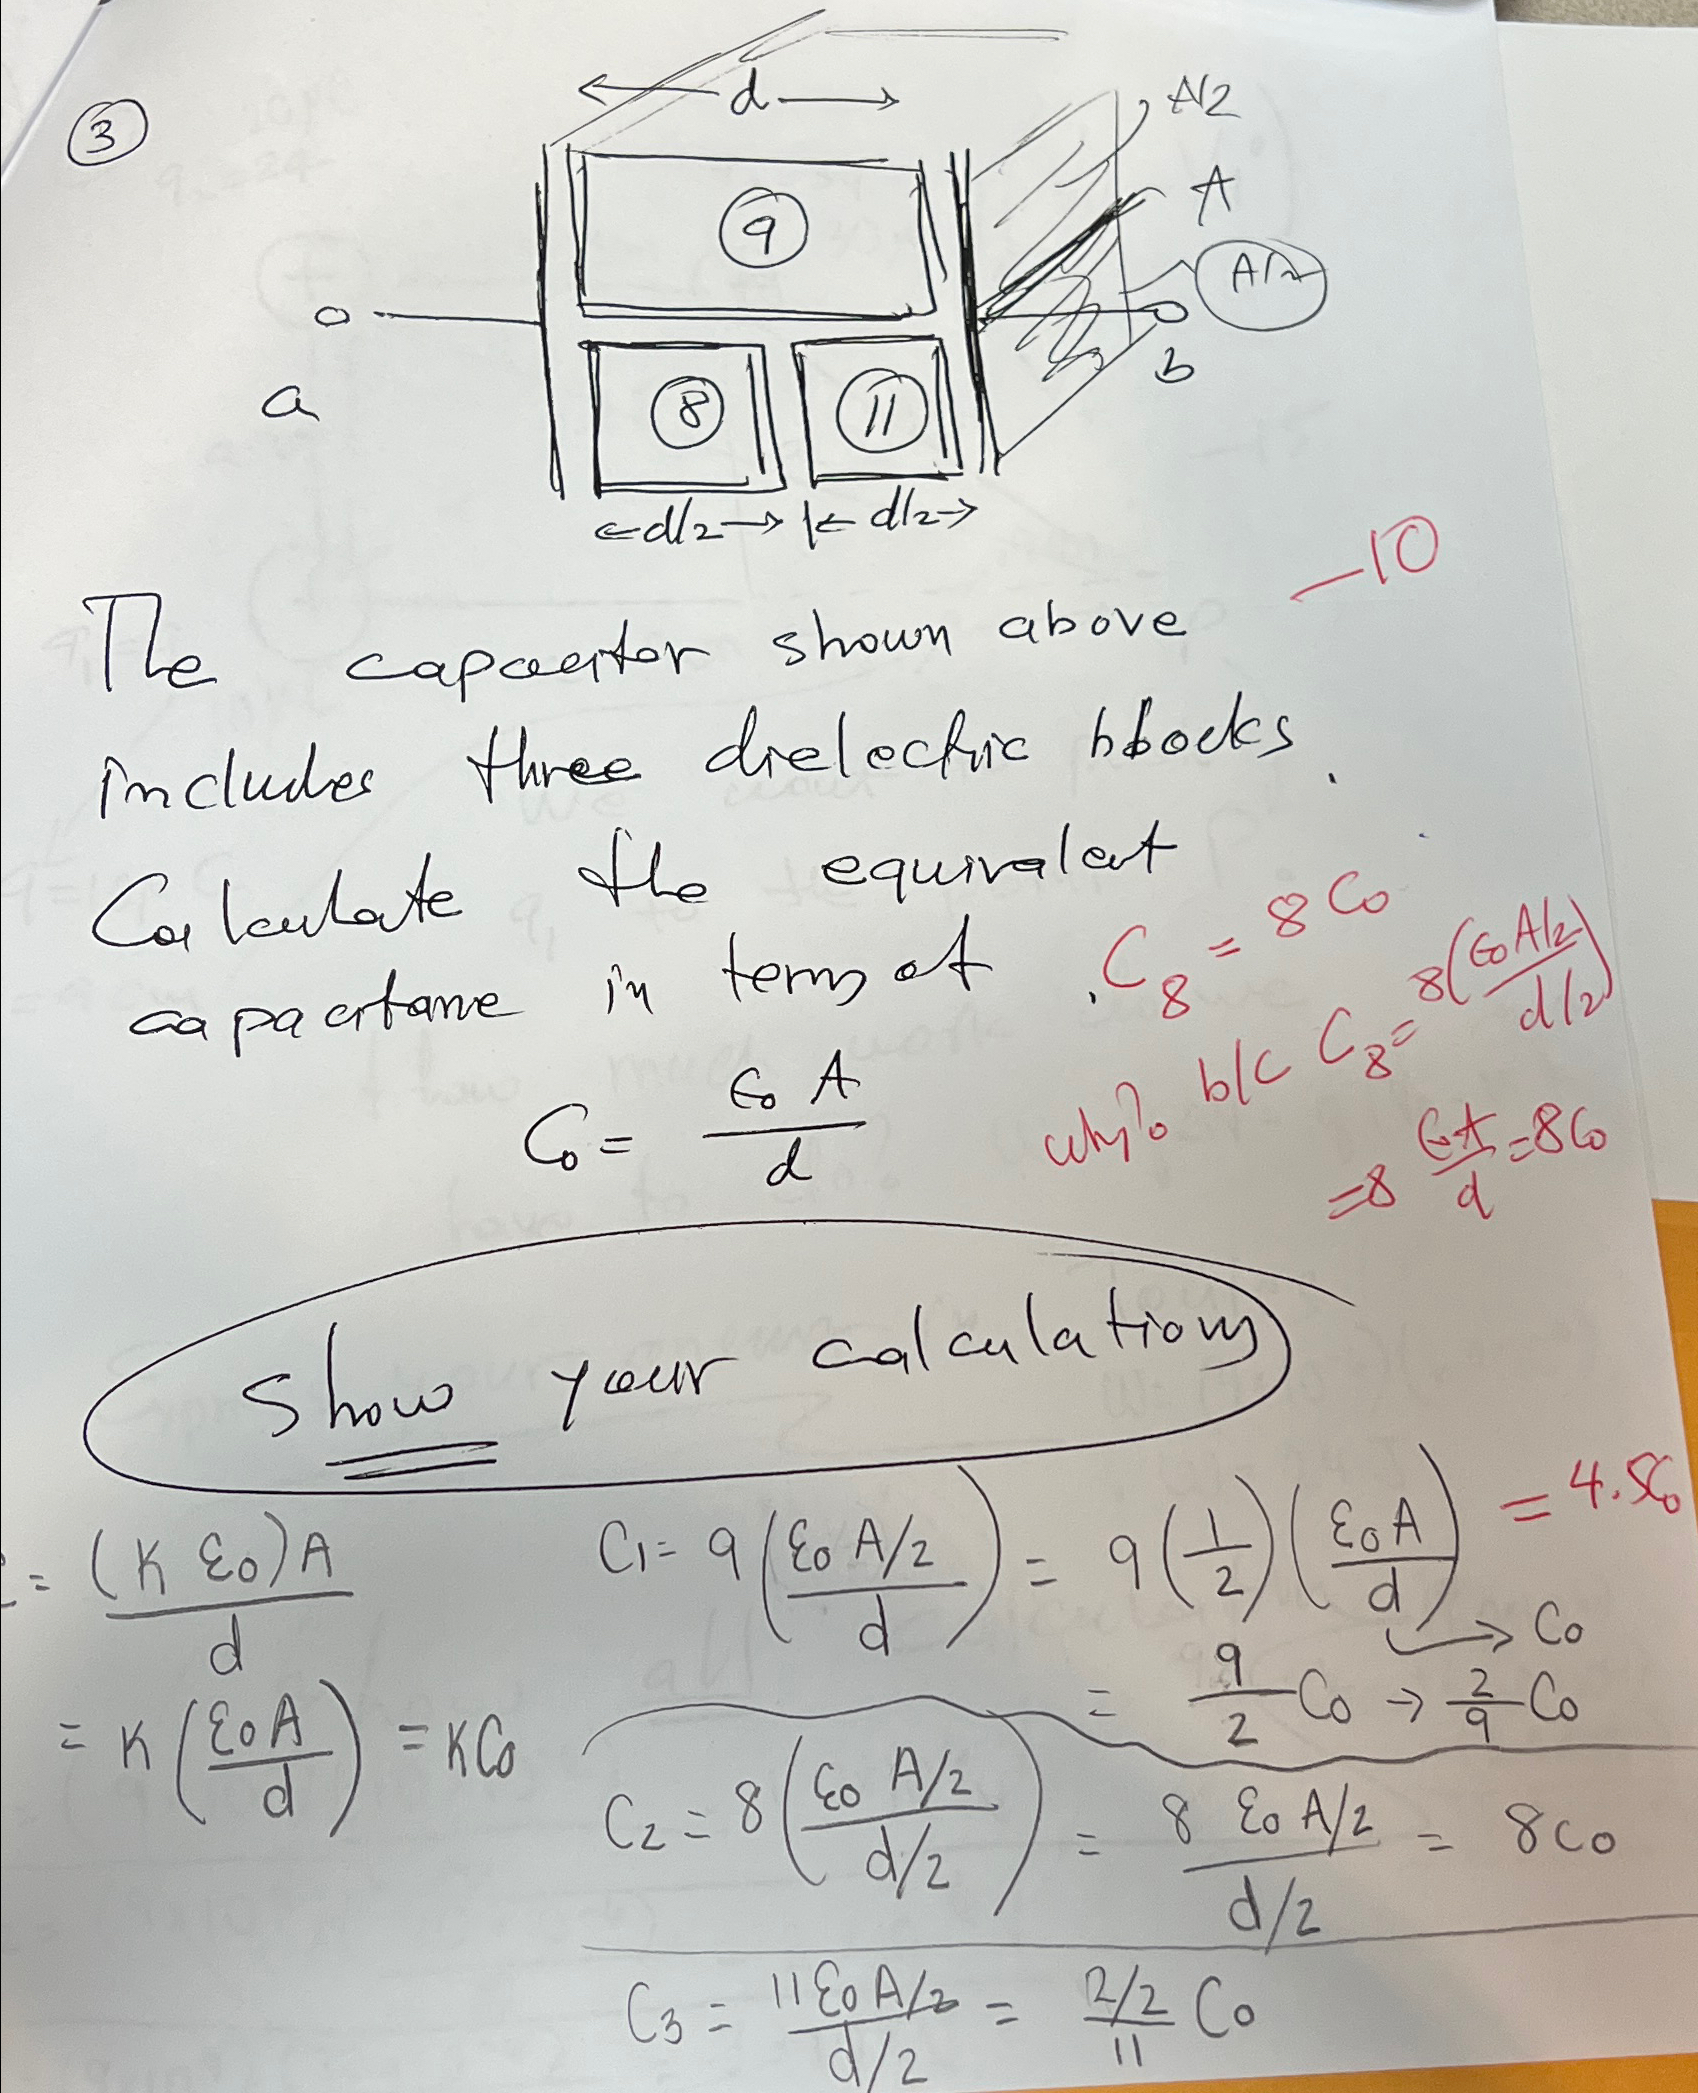 3
d
A/2
A
A/2
9
a
b
8
11
d/2
d/2
-10
The capacitor shown above
includes three dielectric blocks.
Calculate the equivalent
capacitance in terms of
C₀ = ε₀ A / d
C₈ = 8 C₀
why? b/c C₈ = 8 (ε₀ A/2 / d/2)
= 8 ε₀A / d = 8C₀
Show your calculations
= (K ε₀) A / d
= K (ε₀A / d) = KC₀
C₁ = 9 (ε₀ A/2 / d) = 9 (1/2) (ε₀A / d) = 4.5C₀
→ C₀
= 9/2 C₀ → 2/9 C₀
C₂ = 8 (ε₀ A/2 / d/2) = 8 ε₀ A/2 / d/2 = 8C₀
C₃ = 11ε₀ A/2 / d/2 = 2/2 / 11 C₀